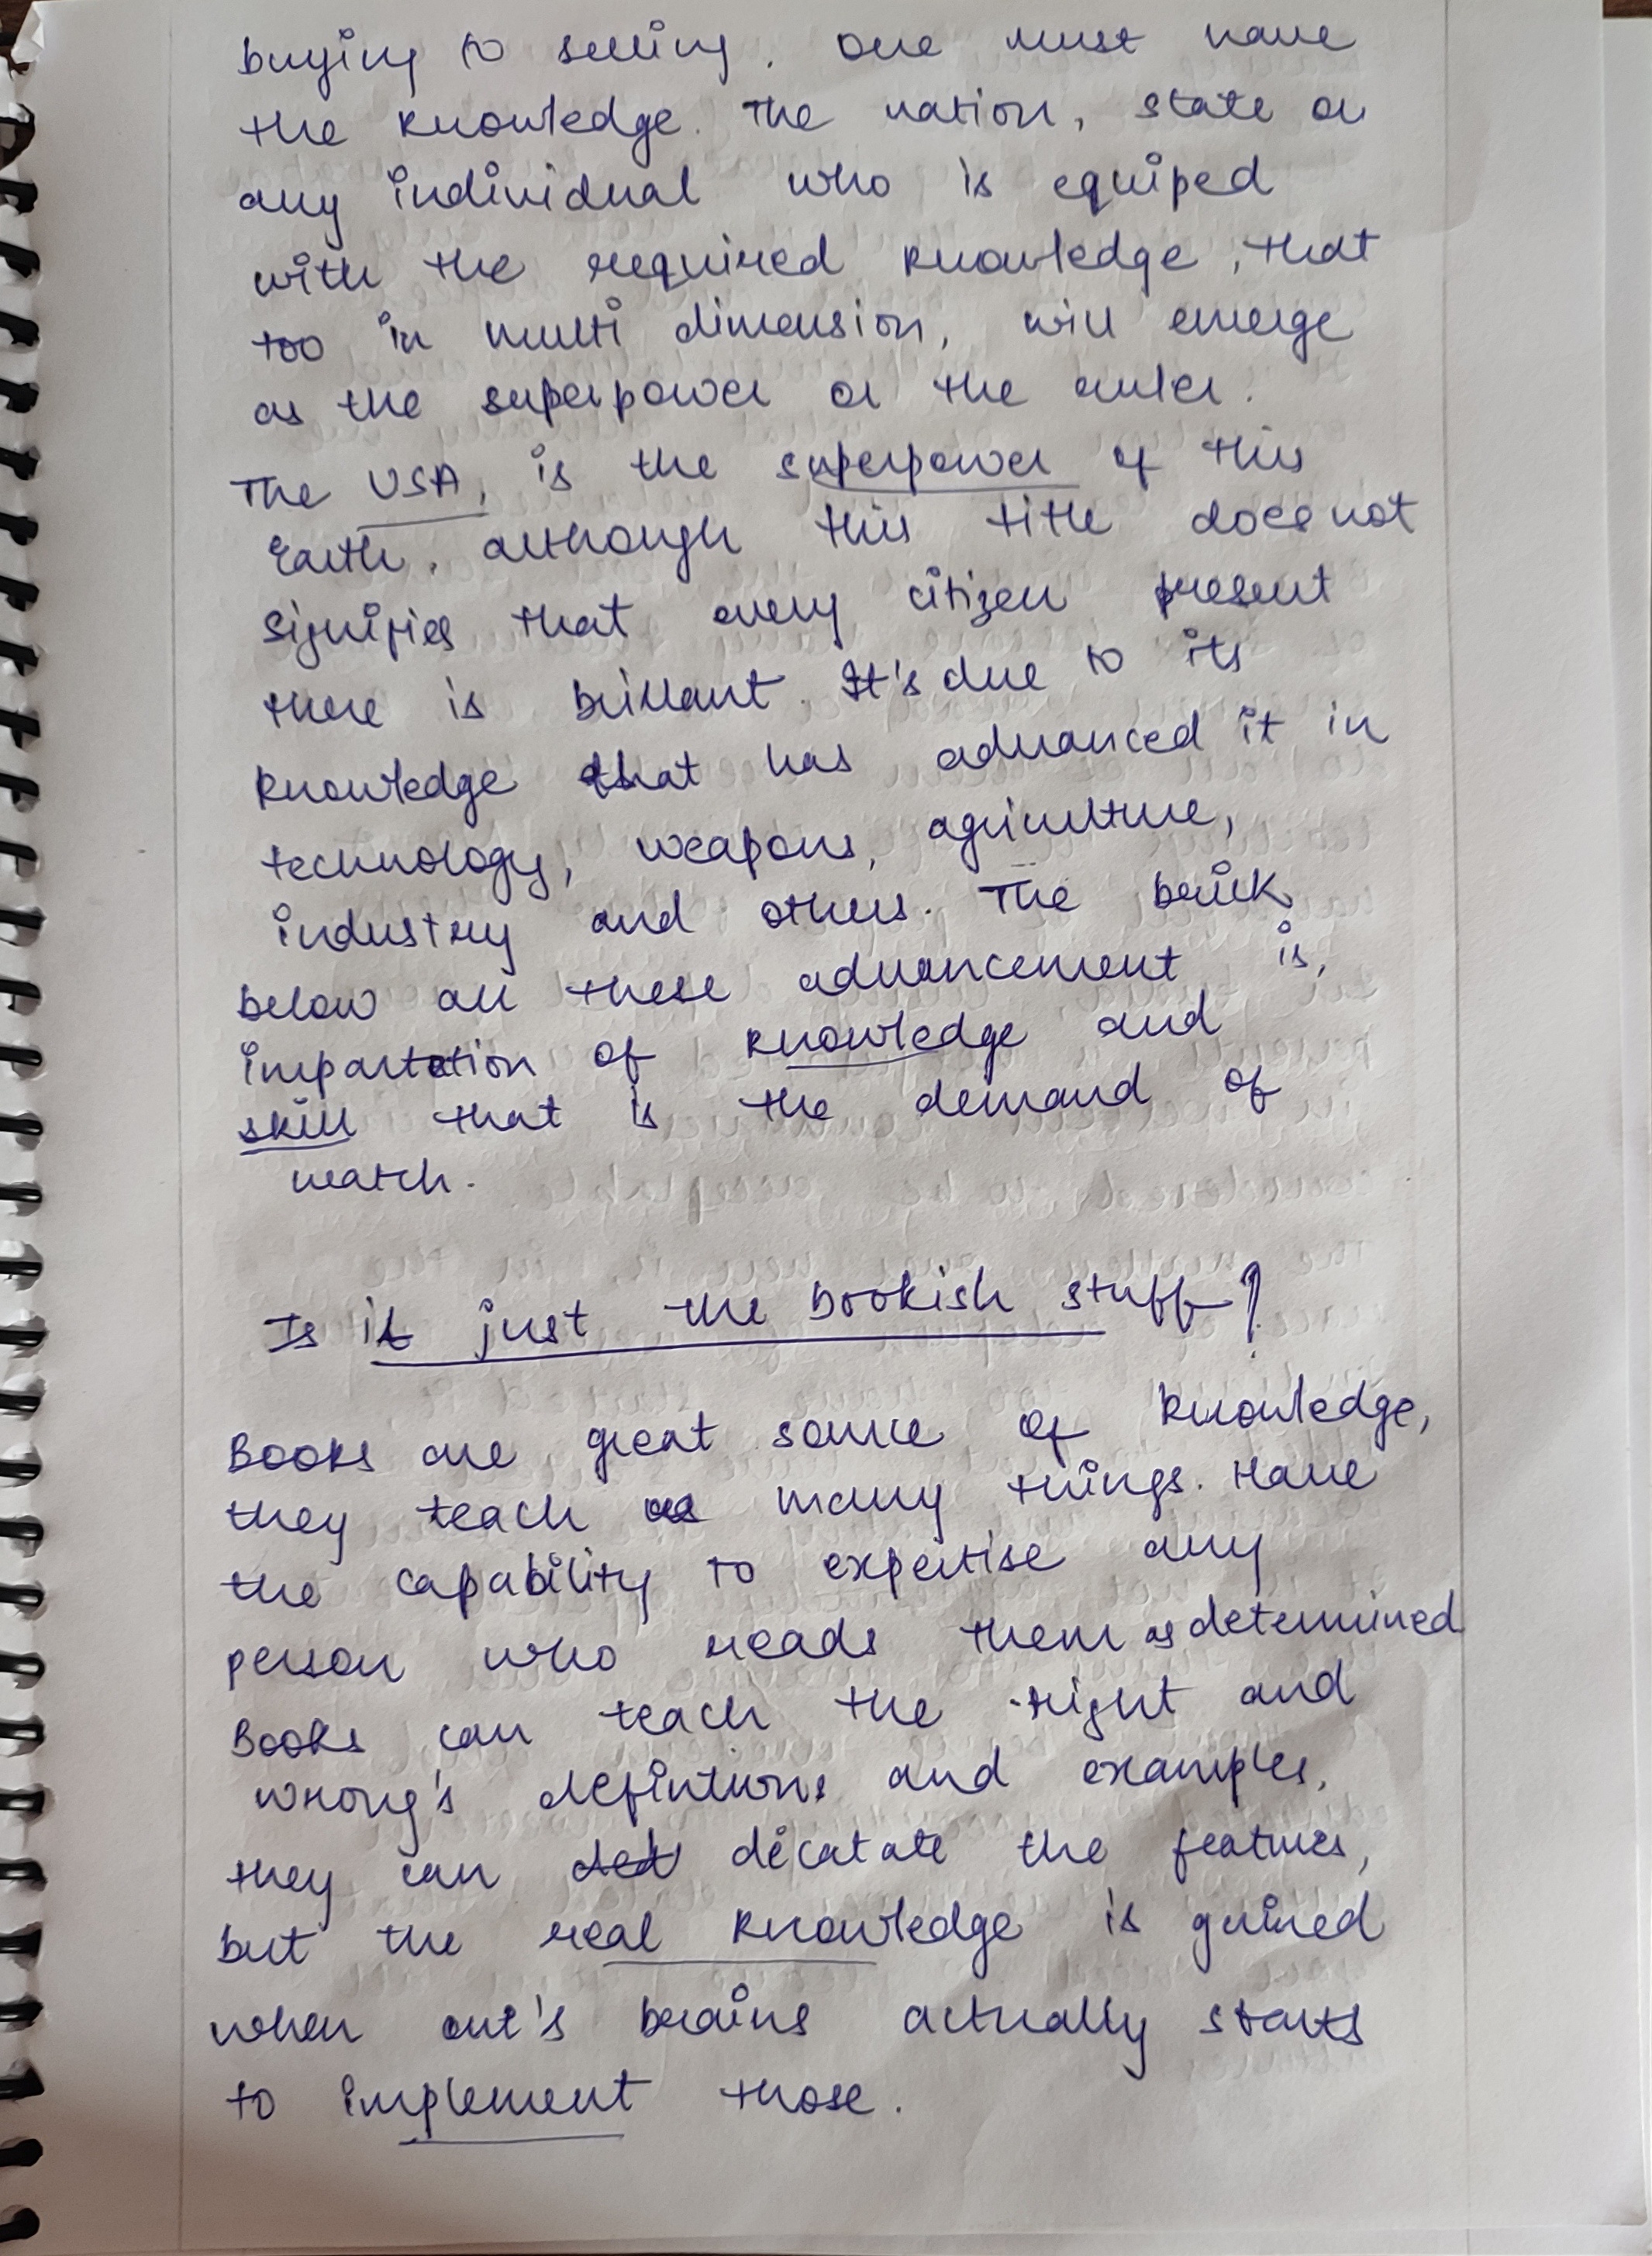 buying to selling. One must have
the knowledge. The nation, state or
any individual who is equiped
with the required knowledge, that
too in multi dimension, will emerge
as the superpower or the ruler.
The USA, is the superpower of this
Earth, although this title does not
signifies that every citizen present
there is brillant. It's due to its
knowledge that has advanced it in
technology, weapons, agriculture,
industry and others. The brick
below all these advancement is,
impartation of knowledge and
skill that is the demand of
match.
Is it just the bookish stuff?
Books are great source of knowledge,
they teach us many things. Have
the capability to expertise any
person who reads them as determined
Books can teach the right and
wrong's defintions and examples,
they can dicatate the features,
but the real knowledge is gained
when one's brains actually starts
to implement those.